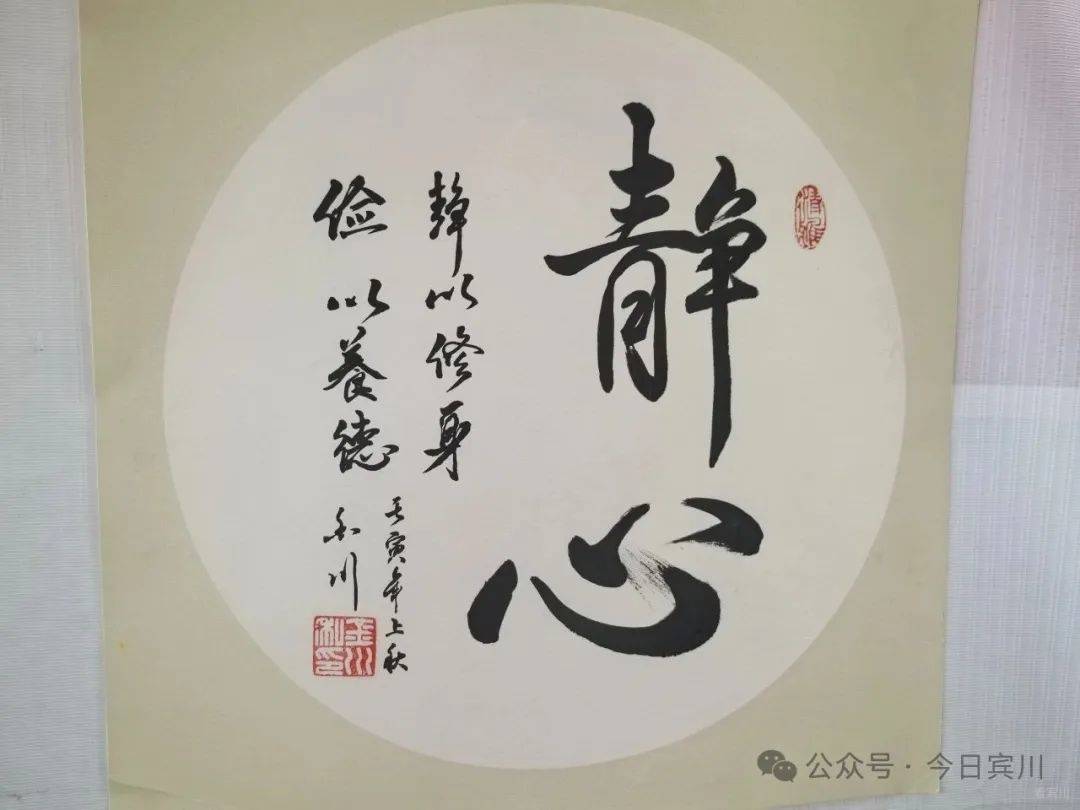 静心
静以修身
俭以養德
壬寅年上秋
公众号·今日宾川
看宾川